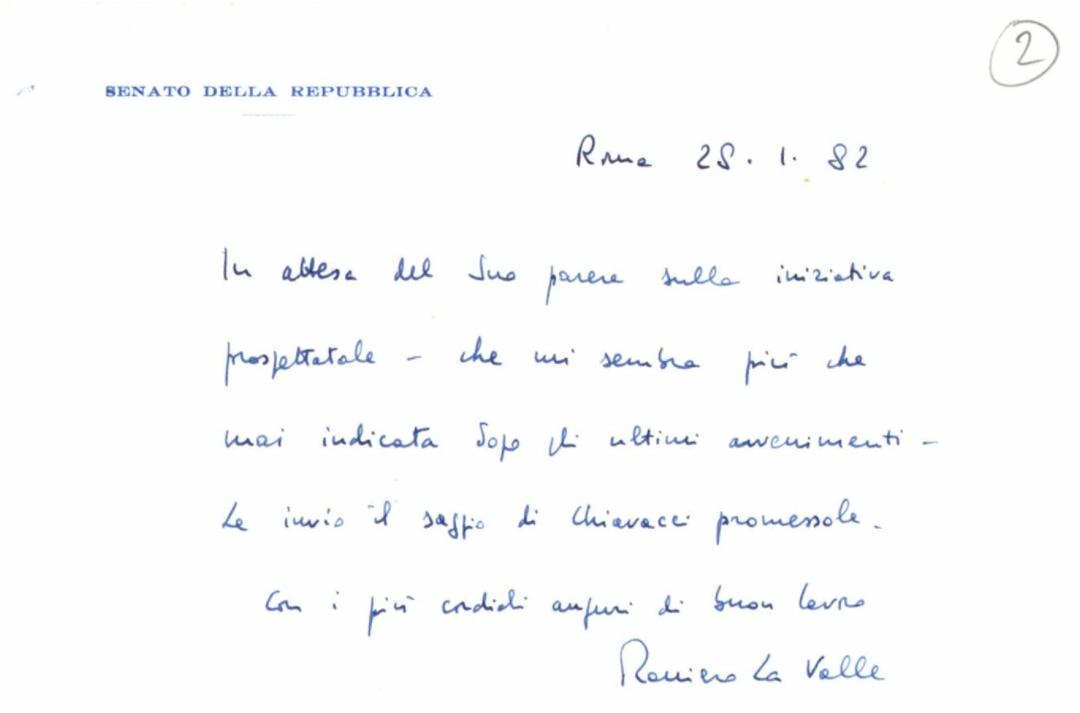 2
SENATO DELLA REPUBBLICA
Roma 28.1.82
In attesa del Suo parere sulla iniziativa
prospettatale - che mi sembra più che
mai indicata dopo gli ultimi avvenimenti -
Le invio il saggio di Chiavacci promessole.
Con i più cordiali auguri di buon lavoro
Raniero La Valle